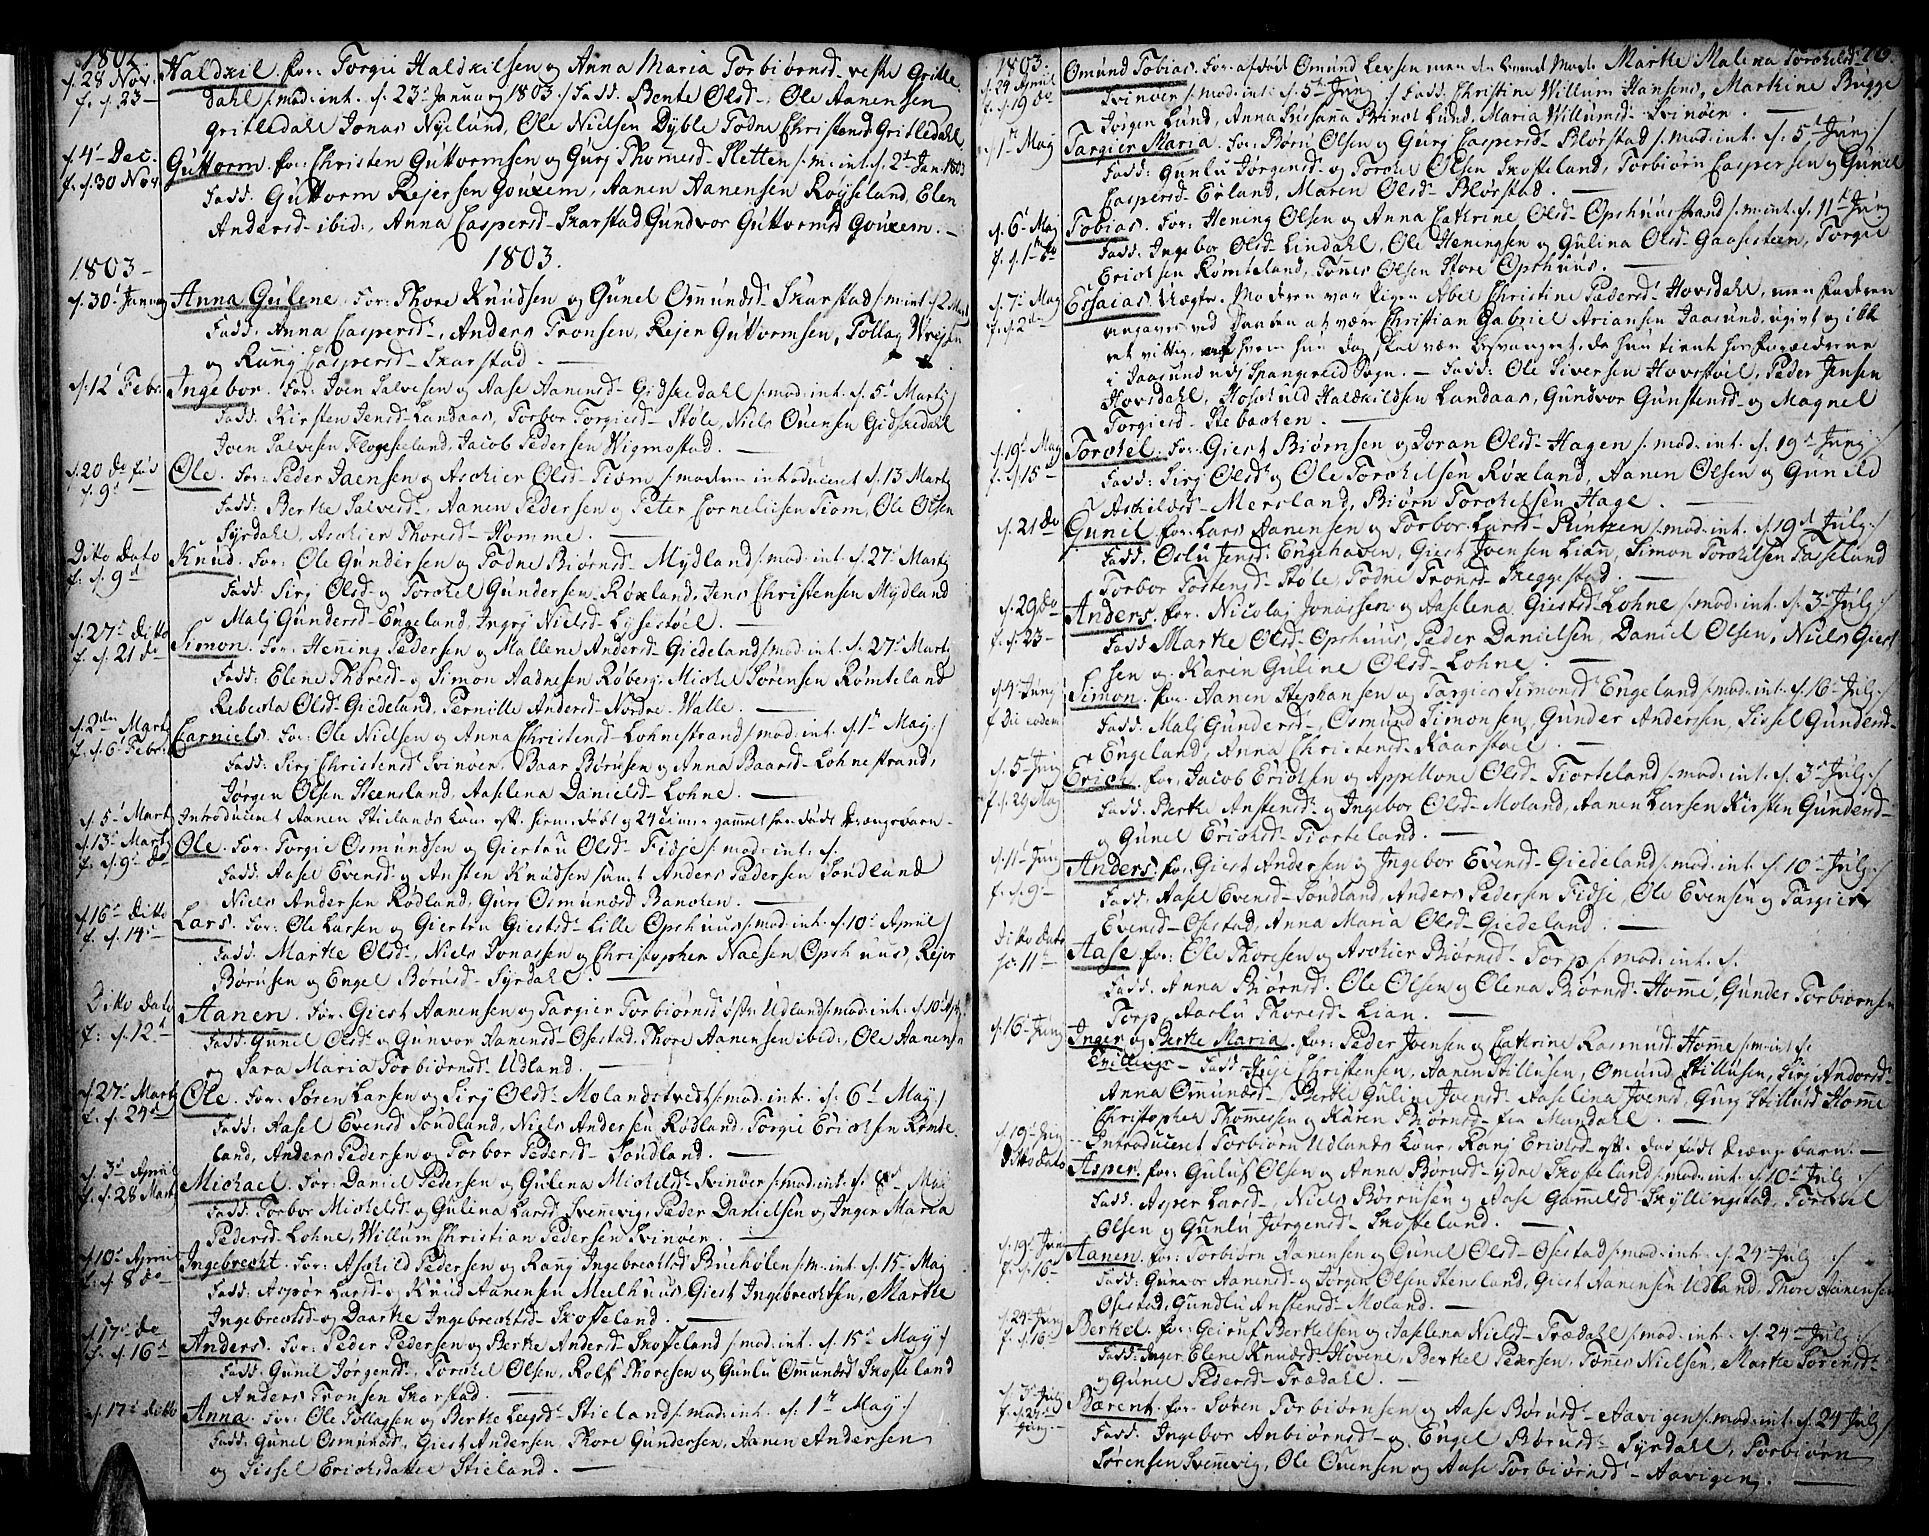 1802.
d. 28 Nov. Haldkil. for: Torgie Haldkilsen og Anna Maria Torbiørnsd. vestre Gritle
f. d. 23 — dahl /:mod: int. d. 23de January 1803:/ Fadd: Bente Olsd. Ole Aanensen
Gritledahl Jonas Nyelund, Ole Nielsen Dyble Todne Christensd. Gritledahl
d. 4. Dec. Guttorm. for: Christen Guttormsen og Gurj Thomesd. Sletten /:m: int. d. 2d Jan. 1803
f. d. 30 Nov. Fadd: Guttorm Rejersen Gouxem, Aanen Aanensen Røyseland, Elen
Andersd. ibid:, Anna Caspersd. Skarstad Gundvor Guttormsd Gouxem. —
1803 — 1803.
d. 30t January Anna Gulene. for: Thore Knudsen og Gunel Osmundsd. Skarstad /:m: int: d. 2 Mart
Fadd: Anna Caspersd., Anders Tronsen, Rejer Guttormsen, Tollag
og Rannj Caspersd. Skarstad. —
d. 12t Febr. Ingebor. For: Joen Salvesen og Aase Aanensd. Gidskedahl /:mod: int. d. 5t Martj:/
Fadd: Kirsten Jensd. Landaas, Torbor Torgiesd. Støle, Niels Ouensen Gidskedahl
Joen Salvesen Flogeseland, Jacob Pedersen Wigmostad. —
d. 20 do Ole. For: Peder Jaensen og Aschier Olsd. Tiom /:moderen introduceret d. 13 Martj
f. 9t Fadd: Berthe Salvesd., Aanen Pedersen og Peter Corneliusen Tiom, Ole Olsen
Syrdahl, Aschier Thoresd. Homme. —
Ditto Dato Knud. For: Ole Gundersen og Todne Biørnsd. Mydland /:mod: int. d. 27t Martj
f. d. 9d Fadd: Sirj Olsd. og Torchel Gundersen Røxland, Jens Christensen Mydland
Malj Gundersd. Engeland, Ingrj Nielsd. Lysestøel. —
d. 27t Ditto Simon. For: Henning Pedersen og Mallene Andersd. Giedeland /:mod: int. d. 27t Martj
f. d. 21 do Fadd: Elene Thoresd. og Simon Aadnesen Røberg, Michel Sørensen Rømteland
Rebecka Olsd. Giedeland, Pernille Andersd. Nordre Walle. —
d. 2den Martj Carniels. For: Ole Nielsen og Anna Christensd. Lohnestrand /:mod: int. d. 1te Maj:/
f. d. 6t Febr. Fadd: Sirj Christensd Svinøer, Baar Børusen og Anna Baarsd. Lohnestrand,
Jørgen Olsen Steensland, Aaselena Danielsd. Lohne. —
d. 5t Mart. Introduceret Aanen Stielands Kone
d. 13t Mart Ole. For: Torgie Osmundsen og Giertru Olsd. Fidje /:mod: int: d.
f. d. 9t do Fadd: Aasel Evensd og Ansten Knudsen samt Anders Pedersen Sondland
Niels Andersen Rødland, Gurj Osmunsd Bancken. —
d. 16t Ditto Lars. For: Ole Larsen og Giertru Giestsd. Lille Opshuus /:mod: int. d. 10t April:/
f. d. 14t Fadd: Marthe Olsd., Niels Jonassen og Christopher Naesen Opshuus, Rejer
Børusen og Engel Børusd. Syrdahl. —
Ditto dato Aanen. For: Giest Aanensen og Targier Torbiørnsd østre Udland /:mod: int. d. 10t Apr
f: d. 12t Fadd: Gunel Olsd. og Gunvor Aanensd. Osestad, Thore Aanensen ibid:, Ole Aanensen
og Sara Maria Torbiørnsd. Udland. —
d. 27t Martj Ole. For: Søren Larsen og Sirj Olsd. Molandstvedt /:mod: int. d. 6t Maj:/
f. d. 24d Fadd: Aasel Evensd Sondland, Niels Andersen Rødland, Torgie Erichsen Rømte
land, Anders Pedersen og Torbor Pedersd. Sondland. —
d. 3d April Michael. For: Daniel Pedersen og Gulena Michelsd. Svinøer /:mod: int. d. 8d Maj
f. d. 28 Mart Fadd: Torbor Michelsd. og Gulina Larsd Svennevig, Peder Danielsen og Inger Maria
Pedersd. Lohne, Willum Christian Pedersen Svinøer. —
d. 10t April Ingebrecht. For: Aschild Pedersen og Rannj Ingebrechtsd Brueholen /:m: int. d. 15t Maj
f. d. 8 do Fadd: Aspør Larsd. og Knud Aanensen Meelhuus, Giest Ingebrechtsen, Marthe
Ingebrechtsd. og Daarthe Ingebrechtsd. Skofteland. —
d. 17t do Anders. For: Peder Pedersen og Berthe Andersd. Skofteland /:mod: int. d. 15t Maj:/
f. d. 16t Fadd: Gunil Jørgensd., Torchel Olsen, Rolf Thoresen og Gunlu Omundsd Skofteland
Anders Tronsen Skarstad. —
d. 17t Ditto Anna. For: Ole Tollagsen og Berthe Leegsd. Stieland /:mod: int. d. 1te Maj:/
Fadd: Gunel Osmunsd., Giest Andersen, Thore Gundersen, Aanen Andersen
og Sissel Erichsdatter Stieland. —
1803.
d. 24 Aprill Omund Tobias. For: Osmund Levsen Marthe Malena Torchelsd.
f. d. 19 do Svinøer /:mod: int: d. 5t Junj:/ Fadd: Christine Willum Hansens, Marthine Bugge
Jørgen Lund, Anna Susanna Brinck Lund, Maria Willumsd. Svinøer. —
d. 1te Maj Targier Maria. For: Børu Olsen og Gurj Caspersd. Blørstad /:mod: int. d. 5t Junj:/
Fadd: Gunlu Jørgensd. og Torchel Olsen Skofteland, Torbiørn Caspersen og Gunil
Caspersd. Erland, Maren Olsd. Blørstad. —
d. 6t Maj Tobias. For: Hening Olsen og Anna Cathrine Olsd. Opshuusstrand /:m: int. d. 11t Junj
f. d. 1te do Fadd: Ingebor Olsd. Lindahl, Ole Heningsen og Gulina Olsd. Gaasesteen, Torgie
Erichsen Rømteland, Tønes Olsen Store Opshuus. —
d. 7t Maj Esaias. Uægte. Moderen var Pigen Abel Christine Pedersd. Hovsdahl, men Faderen
f. d. 2den angaves ved Daaben at være Christian Gabriel Ariansen Jaasund, ugivt og ikke
ret vittig, hvem hun dog skal være besvangret, da hun tiente hos Forældrene
i Jaasund udj Spangereid Sogn. — Fadd: Ole Siversen Hovstøel, Peder Jensen
Hovsdahl, Hoschuld Haldkildsen Landaas, Gundvor Gunstensd. og Magnel
Torgiesd. Stebacken. —
d. 19t Maj Torchel. For: Giert Biørnsen og Joran Olsd. Hagen /:mod: int. d. 19t Junj:/
f. d. 15t Fadd: Sirj Olsd og Ole Torchelsen Roxland, Aanen Olsen og Gunild
Aschildsd. Mersland, Biørn Torchelsen Hage. —
d. 21 do Gunil. for: Lars Aanensen og Torbor Larsd. Rintzen /:mod: int. d. 19d Julj:/
Fadd: Oslu Jensd. Engehaven, Giest Joensen Lian, Simon Torchelsen Fasseland
Torbor Tostensd. Støle, Todne Tronsd. Skeggestad. —
d. 29 do Anders. for: Nicolaj Jonassen og Aaselena Giestsd. Lohne /:mod: int. d. 3d Julj:/
f. d. 23 — Fadd: Marthe Olsd. Opshuus, Peder Danielsen, Daniel Olsen, Niels Giest
sen og Karen Guline Olsd. Lohne. —
d. 4t Junj Simon. for: Aanen Stephansen og Targier Simonsd. Engeland /:mod: int. d. 16. Julj:/
f. Die eodem Fadd: Malj Gundersd. Osmund Simonsen, Gunder Andersen, Sissel Gundersd.
Engeland, Anna Christensd. Kaarstøel. —
d. 5t Junj Erich. for: Jacob Erichsen og Appellone Olsd. Tiorteland /:mod: int. d. 3d Julj:/
f. d. 29 Maj Fadd: Berthe Anstensd. og Ingebor Olsd. Moland, Aanen Larsen Kirsten Gundersd.
og Gunel Erichsd. Tiorteland. —
d. 11t Junj Anders. for: Giest Andersen og Ingebor Evensd. Giedeland /:mod: int. d. 10t Julj:/
f. d. 9t Fadd: Aasel Evensd. Sondland, Anders Pedersen Fidje, Ole Evensen og Targier
Evensd. Osestad, Anna Maria Olsd. Giedeland. —
Ditto Dato Aase. for: Ole Thoresen og Aschier Biørnsd. Torp /:mod: int. d.
Fadd: Anna Biørnsd. Ole Olsen og Olena Biørnsd. Homme, Gunder Torbiørnsen
Torp, Aaslu Thoresd. Lian. —
d. 16t Junj Inger og Berthe Maria. for: Peder Joensen og Cathrine Rasmusd. Homme /:m: int d:
Tvillinger — Fadd: Christensen, Aanen Stillusen, Omund Stillusen, Sirj Andersd.
Anna Ommundsd. Berthe Guline Joensd. Aaselina Joensd, Gurj Stillusd Homme
Christopher Thommessen og Karen Biørnsd. fra Mandahl. —
d. 19t Junj Introduceret Torbiørn Udlands Kone, Ranj Erichsd.
Ditto Dato Asper. for: Guluf Olsen og Anna Børusd. ydre Skofteland /:mod: int. d. 10t Julj:/
Fadd: Asper Larsd., Niels Børusen og Aase Gammelsd. Skyllingstad, Torchel
Olsen og Gunlu Jørgensd. Skofteland. —
d. 19t Junj Aanen. for: Torbiørn Aanensen og Gunel Olsd. Osestad /:mod: int. d. 24de Julj:/
f. d. 16 — Fadd: Gunvor Aanensd. og Jørgen Olsen Stensland, Giest Aanensen Udland, Thore Aanensen
Osestad, Gundlu Anstensd. Moland. —
d. 24t Junj Berthel. for: Geiruf Berthelsen og Aaselena Nielsd. Trædahl /:mod: int. d. 24de Julj:/
f. d. 16t Fadd: Inger Elene Knudsd. Hovene, Berthel Pedersen, Tønes Nielsen, Marthe Sørensd.
og Gunel Pedersd. Trædahl. —
d. 3d Julj Bærent. for: Søren Torbiørnsen og Aase Børusd. Aavigen /:mod: int. d. 24 Julj:/
Junj Fadd: Ingebor Anbiørnsd. og Engel Børusd. Syrdahl, Torbiørn
Sørensen Svennevig, Ole Ouensen og Aase Torbiørnsd. Aavigen. —